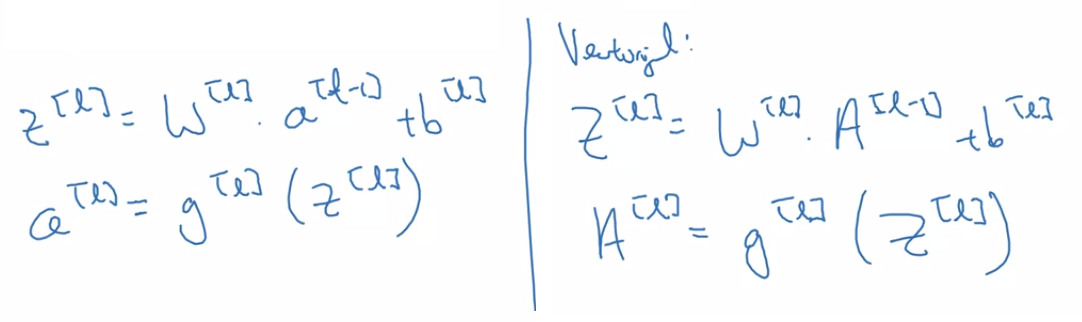 z^[l] = W^[l] · a^[l-1] + b^[l]
a^[l] = g^[l] (z^[l])
Vectorized:
Z^[l] = W^[l] · A^[l-1] + b^[l]
A^[l] = g^[l] (Z^[l])